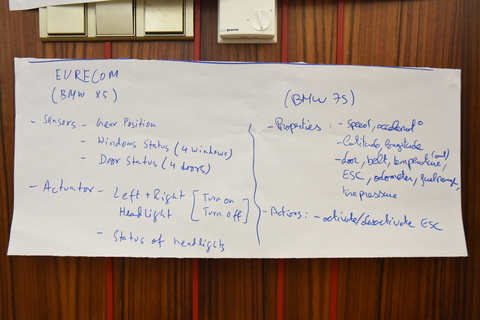 EURECOM
(BMW X5)
- Sensors - Gear Position
- Windows Status (4 windows)
- Door Status (4 doors)
- Actuator - Left + Right [Turn on
Headlight Turn off]
- Status of headlights
(BMW 7S)
- Properties: - speed, accelerat°
- latitude, longitude
- door, belt, temperature, (out)
ESC, odometer, fuel range,
tire pressure
- Actions: - activate/desactivate ESC